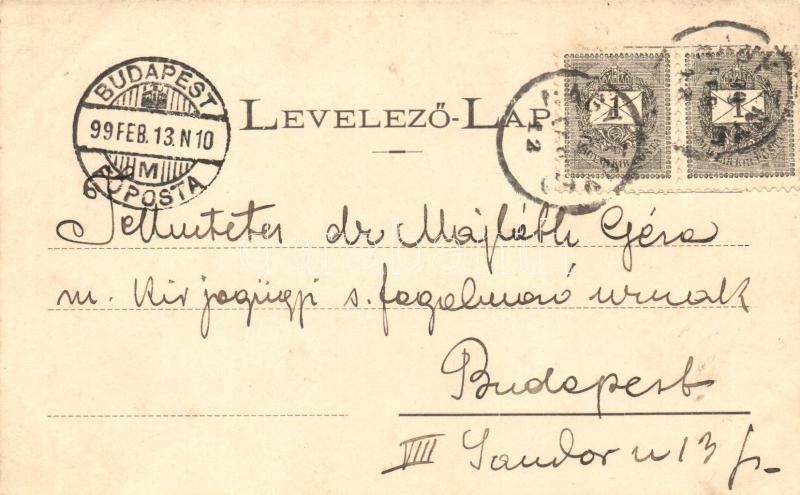 BUDAPEST
99 FEB. 13. N 10
M
FŐPOSTA
6
LEVELEZŐ-LAP
1 1
dr Majláth Géza
m. Kir jogügyi s. fogalmazó urnak
Budapest
VIII Sandor u 13